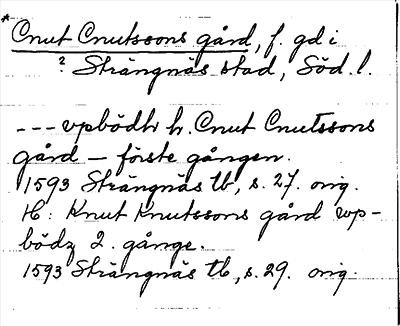 *Cnut Cnutssons gård, f. gd i
? Strängnäs stad, Söd. l.
--- vpbödh h. Cnut Cnutssons
gård – förste gången.
1593 Strängnäs tb, s. 27. orig.
H: Knut Knutssons gård vp-
bödz 2. gånge.
1593 Strängnäs tb, s. 29. orig.